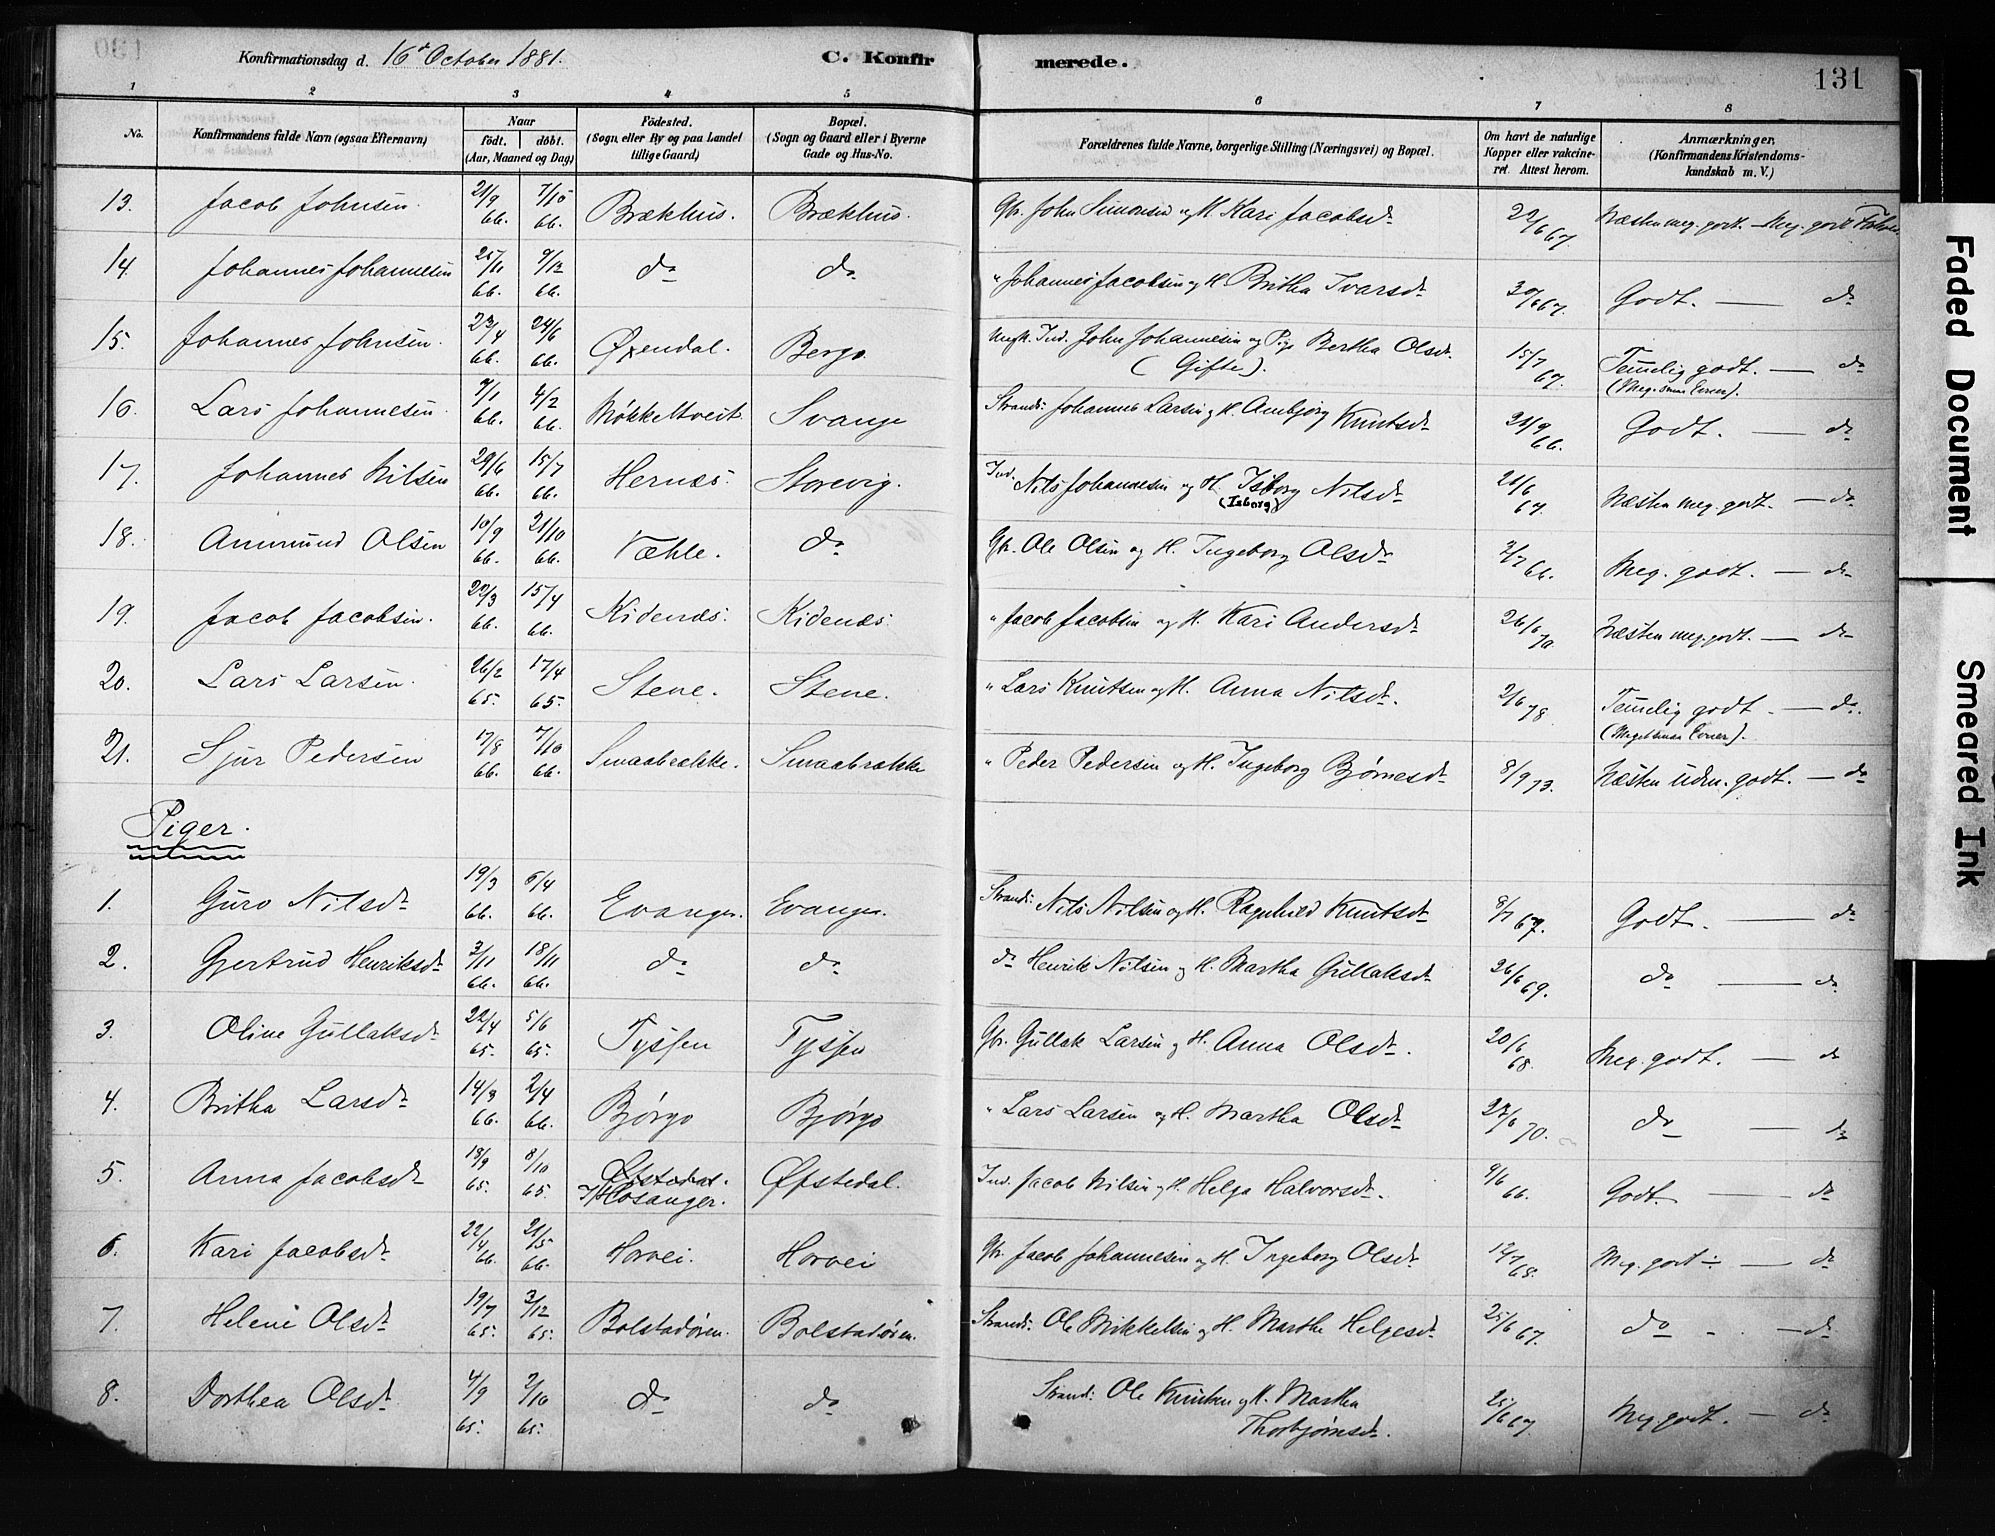 Konfirmationsdag d. 16d October 1881. C. Konfirmerede. 131
1 2 3 4 5 6 7 8
No. Konfirmandens fulde Navn (ogsaa Efternavn) Naar födt. döbt. (Aar, Maaned og Dag) Födested. (Sogn eller By og paa Landet tillige Gaard) Bopæl. (Sogn og Gaard eller i Byerne Gade og Hus-No. Forældrenes fulde Navne, borgerlige Stilling (Næringsvei) og Bopæl. Om havt de naturlige Kopper eller vakcineret. Attest herom. Anmærkninger. (Konfirmandens Kristendomskundskab m. V.)
13. Jacob Johnsen. 21/9 66. 7/10 66. Brækhus. Brækhus. Gbr. John Simonsen og H. Kari Jacobsdr 6 67. Næsten meg. godt. — Meg. godt Forhold
14. Johannes Johannesen 25/11 66. 9/12 66. do do " Johannes Jacobsen og H. Britha Ivarsdr 30/6 67. Godt. — do
15. Johannes Johnsen. 23/4 66. 24/6 66. Øxendal. Bergo Ungk. Ind. John Johannesen og Pige Bertha Olsdr. (Gifte). 15/7 67. Temelig godt. — do
(Meg. smaa Evner).
16. Lars Johannesen. 9/1 66. 4/2 66. Mökkeltveit Svange Strands: Johannes Larsen og H. Ambjørg Knutsdr 21/9 66. Godt. — do
17. Johannes Nilsen 29/6 66. 15/7 66. Hernæs. Storevig. Ind. Nils Johannesen og H. Isborg Nilsdr (Isborg) 21/6 67. Næsten meg. godt. — do
18. Ammund Olsen 10/9 66. 21/10 66. Væhle. do Gbr. Ole Olsen og H. Ingeborg Olsdr 2/7 66. Meg. godt. — do
19. Jacob Jacobsen. 22/3 66. 15/4 66. Kidenæs. Kidenæs " Jacob Jacobsen og H. Kari Andersdr 26/6 70. Næsten meg. godt. — do
20. Lars Larsen. 26/2 65. 17/4 65. Stene. Stene. " Lars Knutsen og H. Anna Nilsdr. 2/6 78. Temelig godt. — do.
(Meget smaa Evner).
21. Sjur Pedersen 17/8 66. 7/10 66. Smaabrække. Smaabrække " Peder Pedersen og H. Ingeborg Bjørnesdr 8/9 73. Næsten udm. godt. — do
Piger.
1. Guro Nilsdr 19/3 66. 6/4 66. Evanger. Evanger. Strands: Nils Nilsen og H. Ragnhild Knutsdr 8/7 67. Godt. — do
2. Gjertrud Henriksdr 3/11 66. 18/11 66. do do do Henrik Nilsen og H. Martha Gullaksdr 26/6 69. do — do
3. Oline Gullaksdr 22/4 65. 5/6 65. Tyssen Tyssen Gbr. Gullak Larsen og H. Anna Olsdr. 20/6 68. Meg. godt. — do
4. Britha Larsdr 14/3 66. 2/4 66. Bjørgo Bjørgo " Lars Larsen og H. Martha Olsdr 27/6 70. do — do
5. Anna Jacobsdr 18/9 65. 8/10 65. Øfstedal. i Hosanger. Øfstedal. Ind. Jacob Nilsen og H. Helga Halvorsdr. 9/6 66. Godt — do
6. Kari Jacobsdr 22/4 66. 21/5 66. Horvei. Horvei Gbr. Jacob Johannesen og H. Ingeborg Olsdr 12/7 68. Meg. godt — do
7. Helene Olsdr 19/7 65. 3/12 65. Bolstadøren. Bolstadøren. Strands: Ole Mikkelsen og H. Marthe Helgesdr 25/6 67. do — do
8. Dorthea Olsdr 4/9 65. 2/10 65. do do Strand: Ole Knutsen og H. Martha Thorbjørnsdr. 25/6 67. Meg godt. — do
Faded Document
Smeared Ink